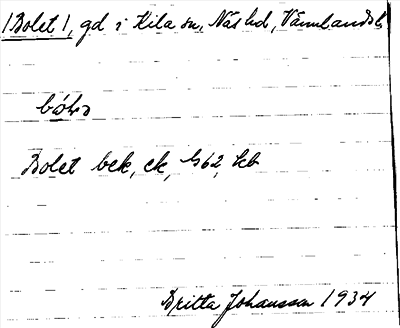 1 Bolet 1, gd i Kila sn, Näs hd, Värmlands l
Bolet bek, ek, G62, kb
Britta Johansson 1934